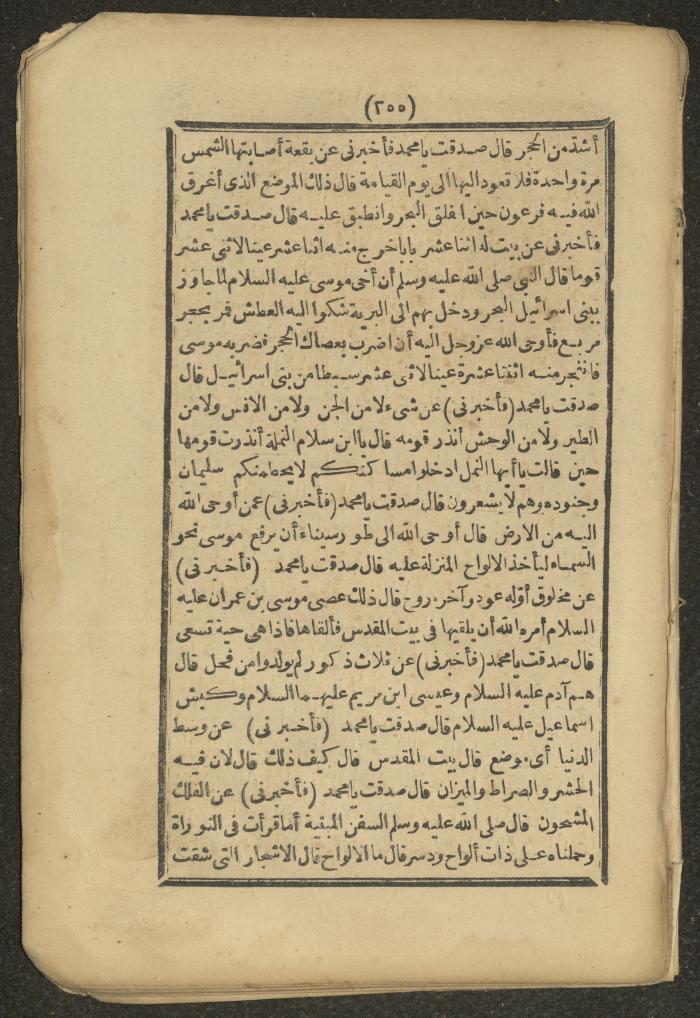 (٢٥٥)
أشد من الحجر قال صدقت يا محمد فأخبرنى عن بقعة أصابتها الشمس
مرة واحدة فلا تعود اليها الى يوم القيامة قال ذلك الموضع الذى أغرق
الله فيه فرعون حين انفلق البحر وانطبق عليه قال صدقت يا محمد
فأخبرنى عن بيت له اثنا عشر بابا خرج منه اثنا عشر عينا لاثنى عشر
قوما قال النبى صلى الله عليه وسلم أن أخى موسى عليه السلام لما جاوز
ببنى اسرائيل البحر ودخل بهم الى البرية شكوا اليه العطش فمر بحجر
مربع فأوحى الله عز وجل اليه أن اضرب بعصاك الحجر فضربه موسى
فانفجر منه اثنتا عشرة عينا لاثنى عشر سبطا من بنى اسرائيل قال
صدقت يا محمد (فأخبرنى) عن شىء لا من الجن ولا من الانس ولا من
الطير ولا من الوحش أنذر قومه قال يا ابن سلام النملة أنذرت قومها
حين قالت يا أيها النمل ادخلوا مساكنكم لا يحطمنكم سليمان
وجنوده وهم لا يشعرون قال صدقت يا محمد (فأخبرنى) عمن أوحى الله
اليه من الارض قال أوحى الله الى طور سيناء أن يرفع موسى نحو
السماء ليأخذ الالواح المنزلة عليه قال صدقت يا محمد (فأخبرنى)
عن مخلوق أوّله عود وآخره روح قال ذلك عصى موسى بن عمران عليه
السلام أمره الله أن يلقيها فى بيت المقدس فألقاها فاذا هى حية تسعى
قال صدقت يا محمد (فأخبرنى) عن ثلاث ذكور لم يولدوا من فحل قال
هم آدم عليه السلام وعيسى ابن مريم عليهما السلام وكبش
اسماعيل عليه السلام قال صدقت يا محمد (فأخبرنى) عن وسط
الدنيا أى موضع قال بيت المقدس قال كيف ذلك قال لان فيه
الحشر والصراط والميزان قال صدقت يا محمد (فأخبرنى) عن الفلك
المشحون قال صلى الله عليه وسلم السفن المبنية أما قرأت فى التوراة
وحملناه على ذات ألواح ودسر قال ما الالواح قال الاشجار التى شقت